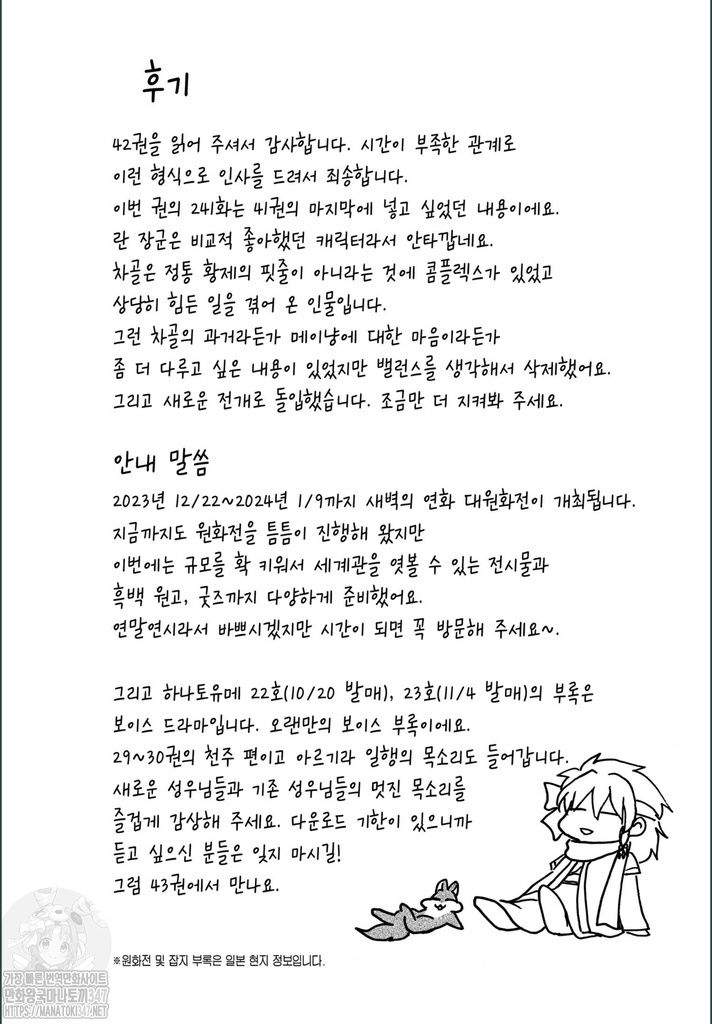 후기
42권을 읽어 주셔서 감사합니다. 시간이 부족한 관계로
이런 형식으로 인사를 드려서 죄송합니다.
이번 권의 241화는 41권의 마지막에 넣고 싶었던 내용이에요.
란 장군은 비교적 좋아했던 캐릭터라서 안타깝네요.
차골은 정통 황제의 핏줄이 아니라는 것에 콤플렉스가 있었고
상당히 힘든 일을 겪어 온 인물입니다.
그런 차골의 과거라든가 메이냥에 대한 마음이라든가
좀 더 다루고 싶은 내용이 있었지만 밸런스를 생각해서 삭제했어요.
그리고 새로운 전개로 돌입했습니다. 조금만 더 지켜봐 주세요.
안내 말씀
2023년 12/22~2024년 1/9까지 새벽의 연화 대원화전이 개최됩니다.
지금까지도 원화전을 틈틈이 진행해 왔지만
이번에는 규모를 확 키워서 세계관을 엿볼 수 있는 전시물과
흑백 원고, 굿즈까지 다양하게 준비했어요.
연말연시라서 바쁘시겠지만 시간이 되면 꼭 방문해 주세요~.
그리고 하나토유메 22호(10/20 발매), 23호(11/4 발매)의 부록은
보이스 드라마입니다. 오랜만의 보이스 부록이에요.
29~30권의 천주 편이고 아르기라 일행의 목소리도 들어갑니다.
새로운 성우님들과 기존 성우님들의 멋진 목소리를
즐겁게 감상해 주세요. 다운로드 기한이 있으니까
듣고 싶으신 분들은 잊지 마시길!
그럼 43권에서 만나요.
※원화전 및 잡지 부록은 일본 현지 정보입니다.
가장 빠른 번역만화사이트
만화왕국마나토끼347
HTTPS://MANATOKI347.NET